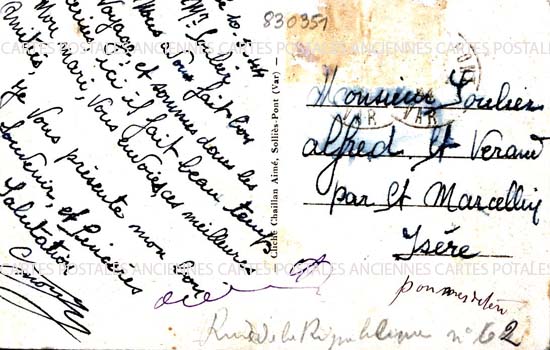 830351
le 10-2-44
Mr Soulier
Nous
fait bon
Voyage, et sommes dans les
ici il fait beau temps
Mon mari, vous envoie ses meilleures
Amitiés, je vous présente mon bon
Souvenir, et Sincères
Salutations
Cliché Chaillan Aimé, Solliès-Pont (Var)
VAR
VAR
Monsieur Soulier
alfred St Verand
par St Marcellin
Isère
Rue de la République n° 62
ANCIENNES CARTES POSTALES ANCIENNES CARTES POSTALES
ANCIENNES CARTES POSTALES ANCIENNES CARTES POSTALES